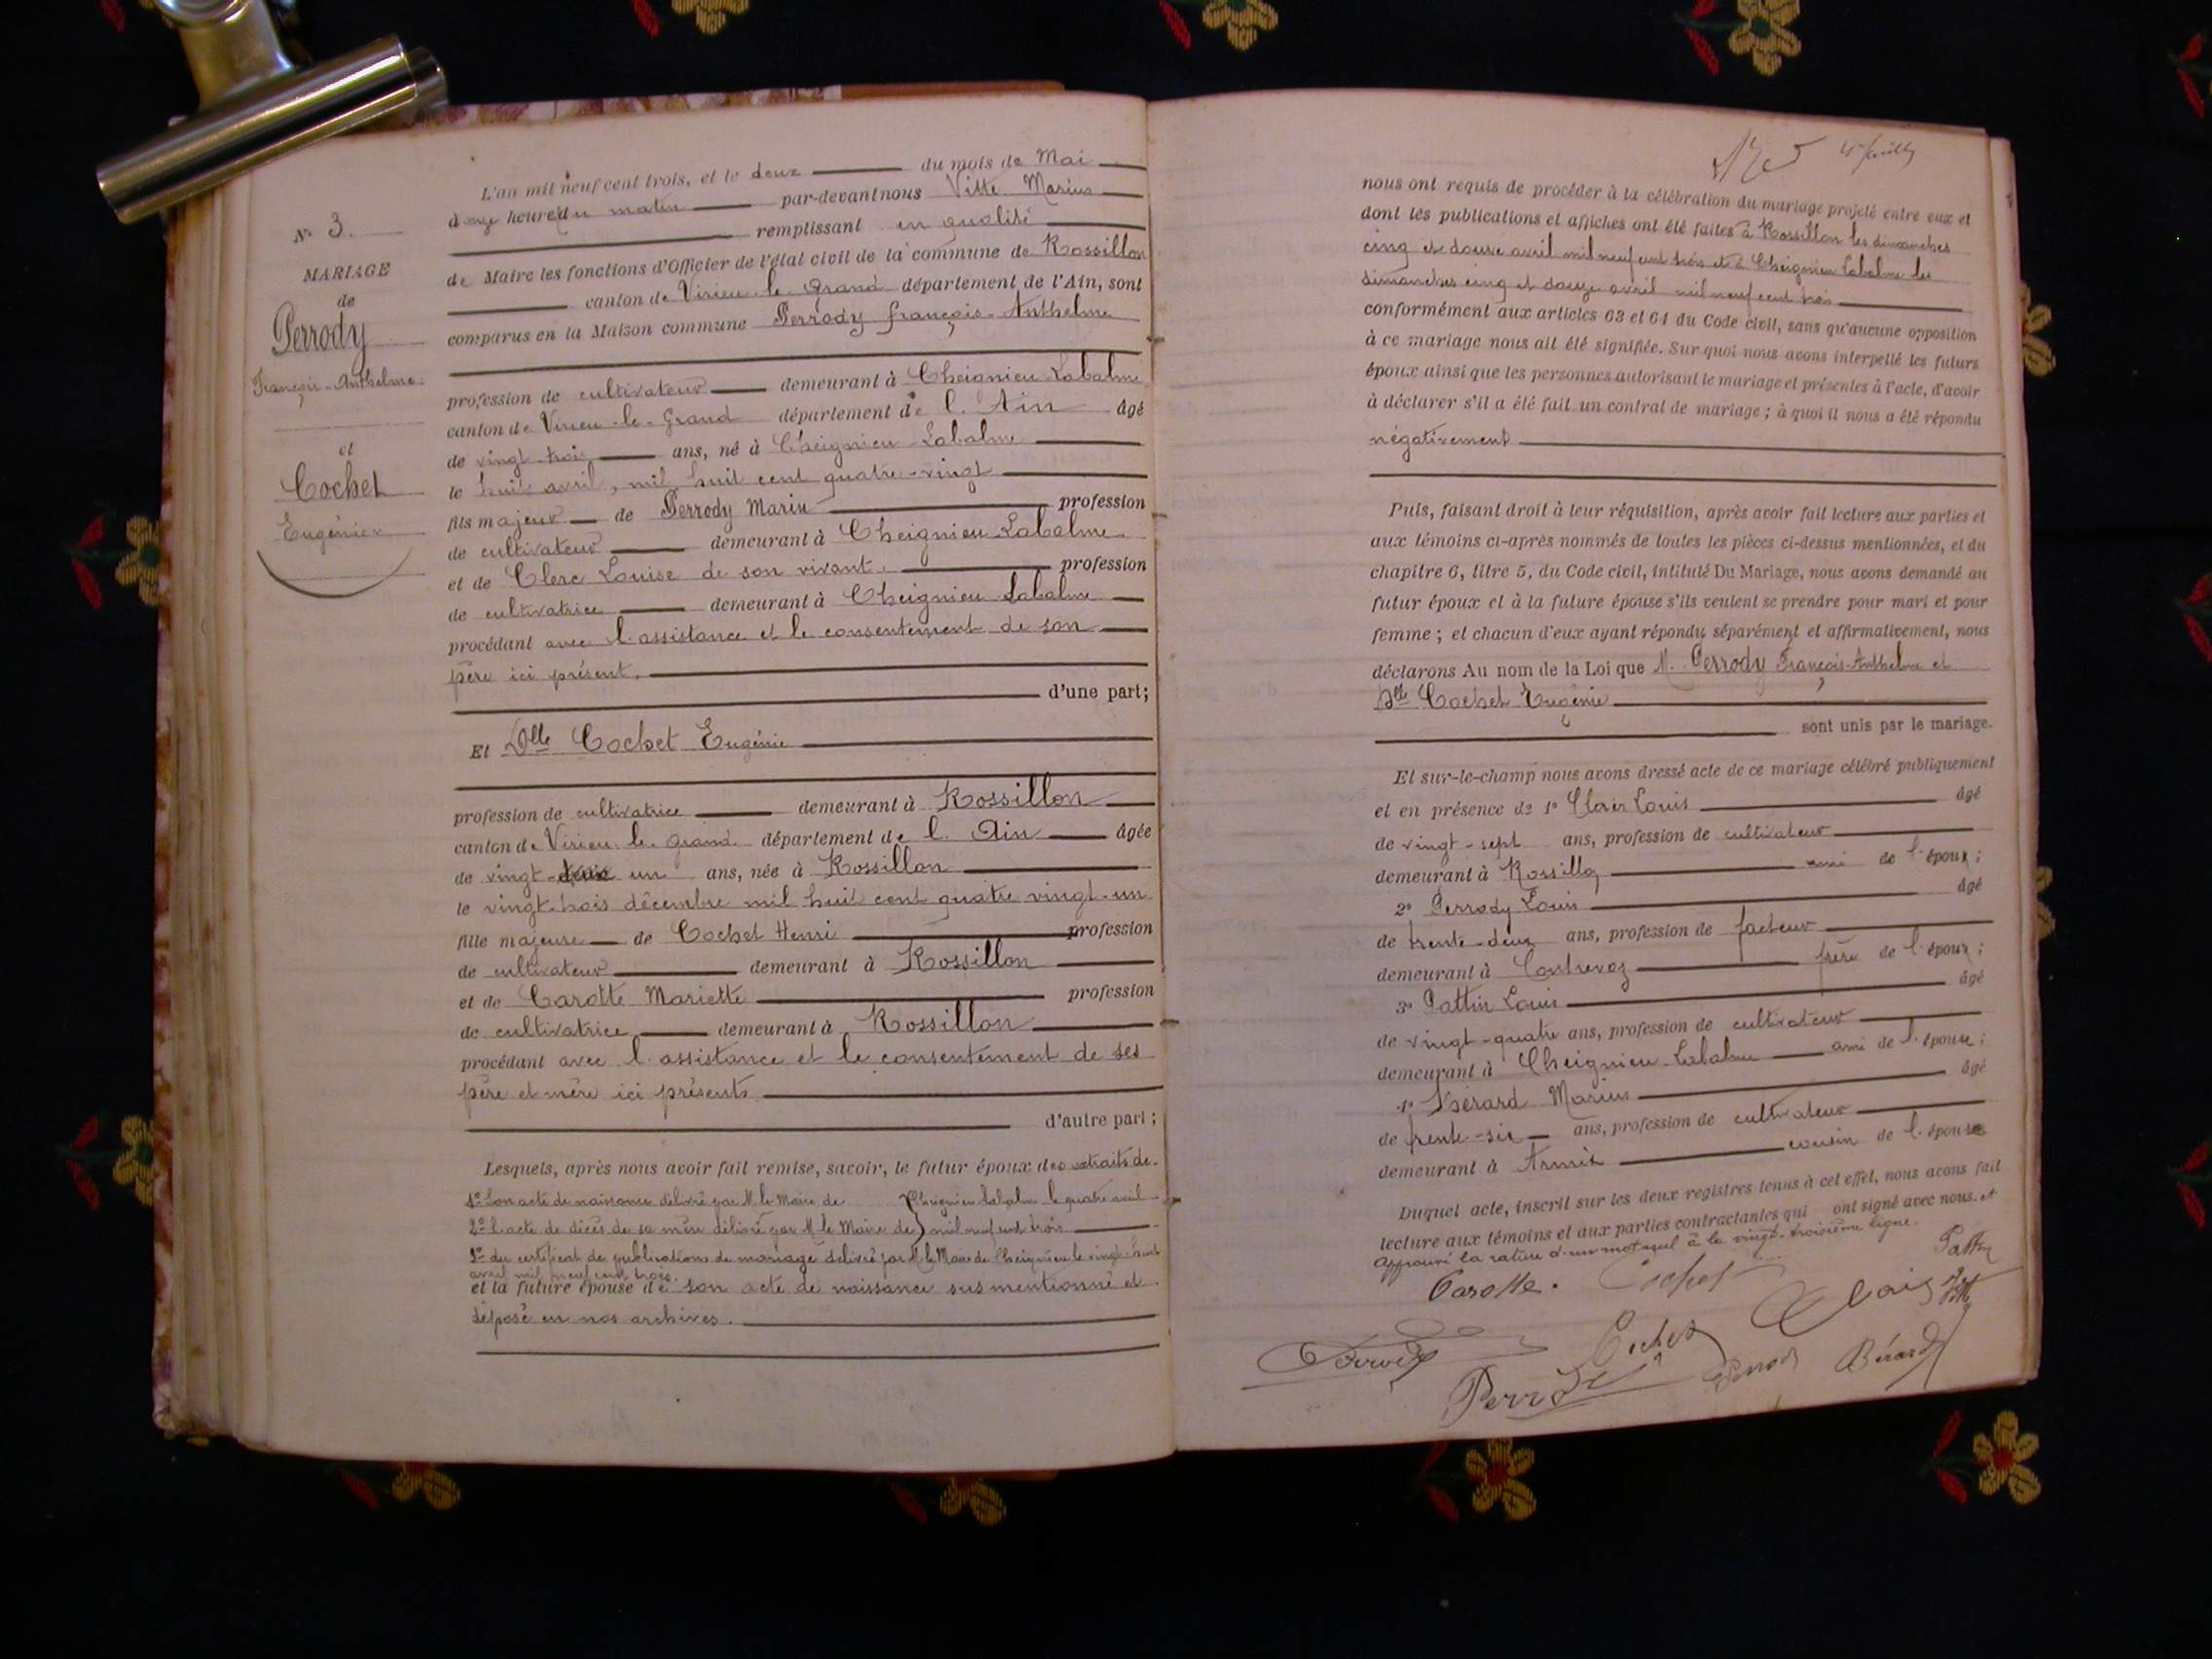 N° 3.
MARIAGE
de
Perrody
François-Anthelme
et
Cochet
Eugénie
L'an mil neuf cent trois, et le deux du mois de Mai
à onze heures du matin par-devant nous Vitte Marius
remplissant en qualité
de Maire les fonctions d'Officier de l'état civil de la commune de Rossillon
canton de Virieu-le-Grand département de l'Ain, sont
comparus en la Maison commune Perrody françois-Anthelme
profession de cultivateur demeurant à Cheignieu-Labalme
canton de Virieu-le-Grand département de l'Ain âgé
de vingt-trois ans, né à Cheignieu-Labalme
le huit avril, mil huit cent quatre-vingt
fils majeur de Perrody Marin profession
de cultivateur demeurant à Cheignieu-Labalme
et de Clerc Louise de son vivant profession
de cultivatrice demeurant à Cheignieu-Labalme
procédant avec l'assistance et le consentement de son
père ici présent,
d'une part;
Et Dlle Cochet Eugénie
profession de cultivatrice demeurant à Rossillon
canton de Virieu-le-grand département de l'Ain âgée
de vingt-deux un ans, née à Rossillon
le vingt-trois décembre mil huit cent quatre vingt-un
fille majeure de Cochet Henri profession
de cultivateur demeurant à Rossillon
et de Carotte Mariette profession
de cultivatrice demeurant à Rossillon
procédant avec l'assistance et le consentement de ses
père et mère ici présents
d'autre part;
Lesquels, après nous avoir fait remise, savoir, le futur époux des extraits de
1° Son acte de naissance délivré par M. le Maire de Cheignieu Labalme le quatre avril
2° L'acte de décès de sa mère délivré par M. le Maire de mil neuf cent trois
3° du certificat de publications de mariage délivré par M. le Maire de Cheignieu le vingt-huit
avril mil neuf cent trois.
et la future épouse de son acte de naissance susmentionné et
déposé en nos archives.
4e feuille
nous ont requis de procéder à la célébration du mariage projeté entre eux et
dont les publications et affiches ont été faites à Rossillon les dimanches
cinq et douze avril mil neuf cent trois et à Cheignieu Labalme les
dimanches cinq et douze avril mil neuf cent trois
conformément aux articles 63 et 64 du Code civil, sans qu'aucune opposition
à ce mariage nous ait été signifiée. Sur quoi nous avons interpellé les futurs
époux ainsi que les personnes autorisant le mariage et présentes à l'acte, d'avoir
à déclarer s'il a été fait un contrat de mariage; à quoi il nous a été répondu
négativement
Puis, faisant droit à leur réquisition, après avoir fait lecture aux parties et
aux témoins ci-après nommés de toutes les pièces ci-dessus mentionnées, et du
chapitre 6, titre 5, du Code civil, intitulé Du Mariage, nous avons demandé au
futur époux et à la future épouse s'ils veulent se prendre pour mari et pour
femme; et chacun d'eux ayant répondu séparément et affirmativement, nous
déclarons Au nom de la Loi que M. Perrody François-Anthelme et
Dlle Cochet Eugénie
sont unis par le mariage.
Et sur-le-champ nous avons dressé acte de ce mariage célébré publiquement
et en présence de 1° Clair Louis âgé
de vingt-sept ans, profession de cultivateur
demeurant à Rossillon ami de l'époux;
2° Perrody Louis âgé
de trente-deux ans, profession de facteur
demeurant à Contrevoz frère de l'époux;
3° Pattin Louis âgé
de vingt-quatre ans, profession de cultivateur
demeurant à Cheignieu-Labalme ami de l'épouse;
4° Bérard Marius âgé
de trente-six ans, profession de cultivateur
demeurant à Armix cousin de l'épouse
Duquel acte, inscrit sur les deux registres tenus à cet effet, nous avons fait
lecture aux témoins et aux parties contractantes qui ont signé avec nous. et
approuvé la rature d'un mot nul à la vingt-troisième ligne.
Carotte. Cochet Clair
Cochet Bérard